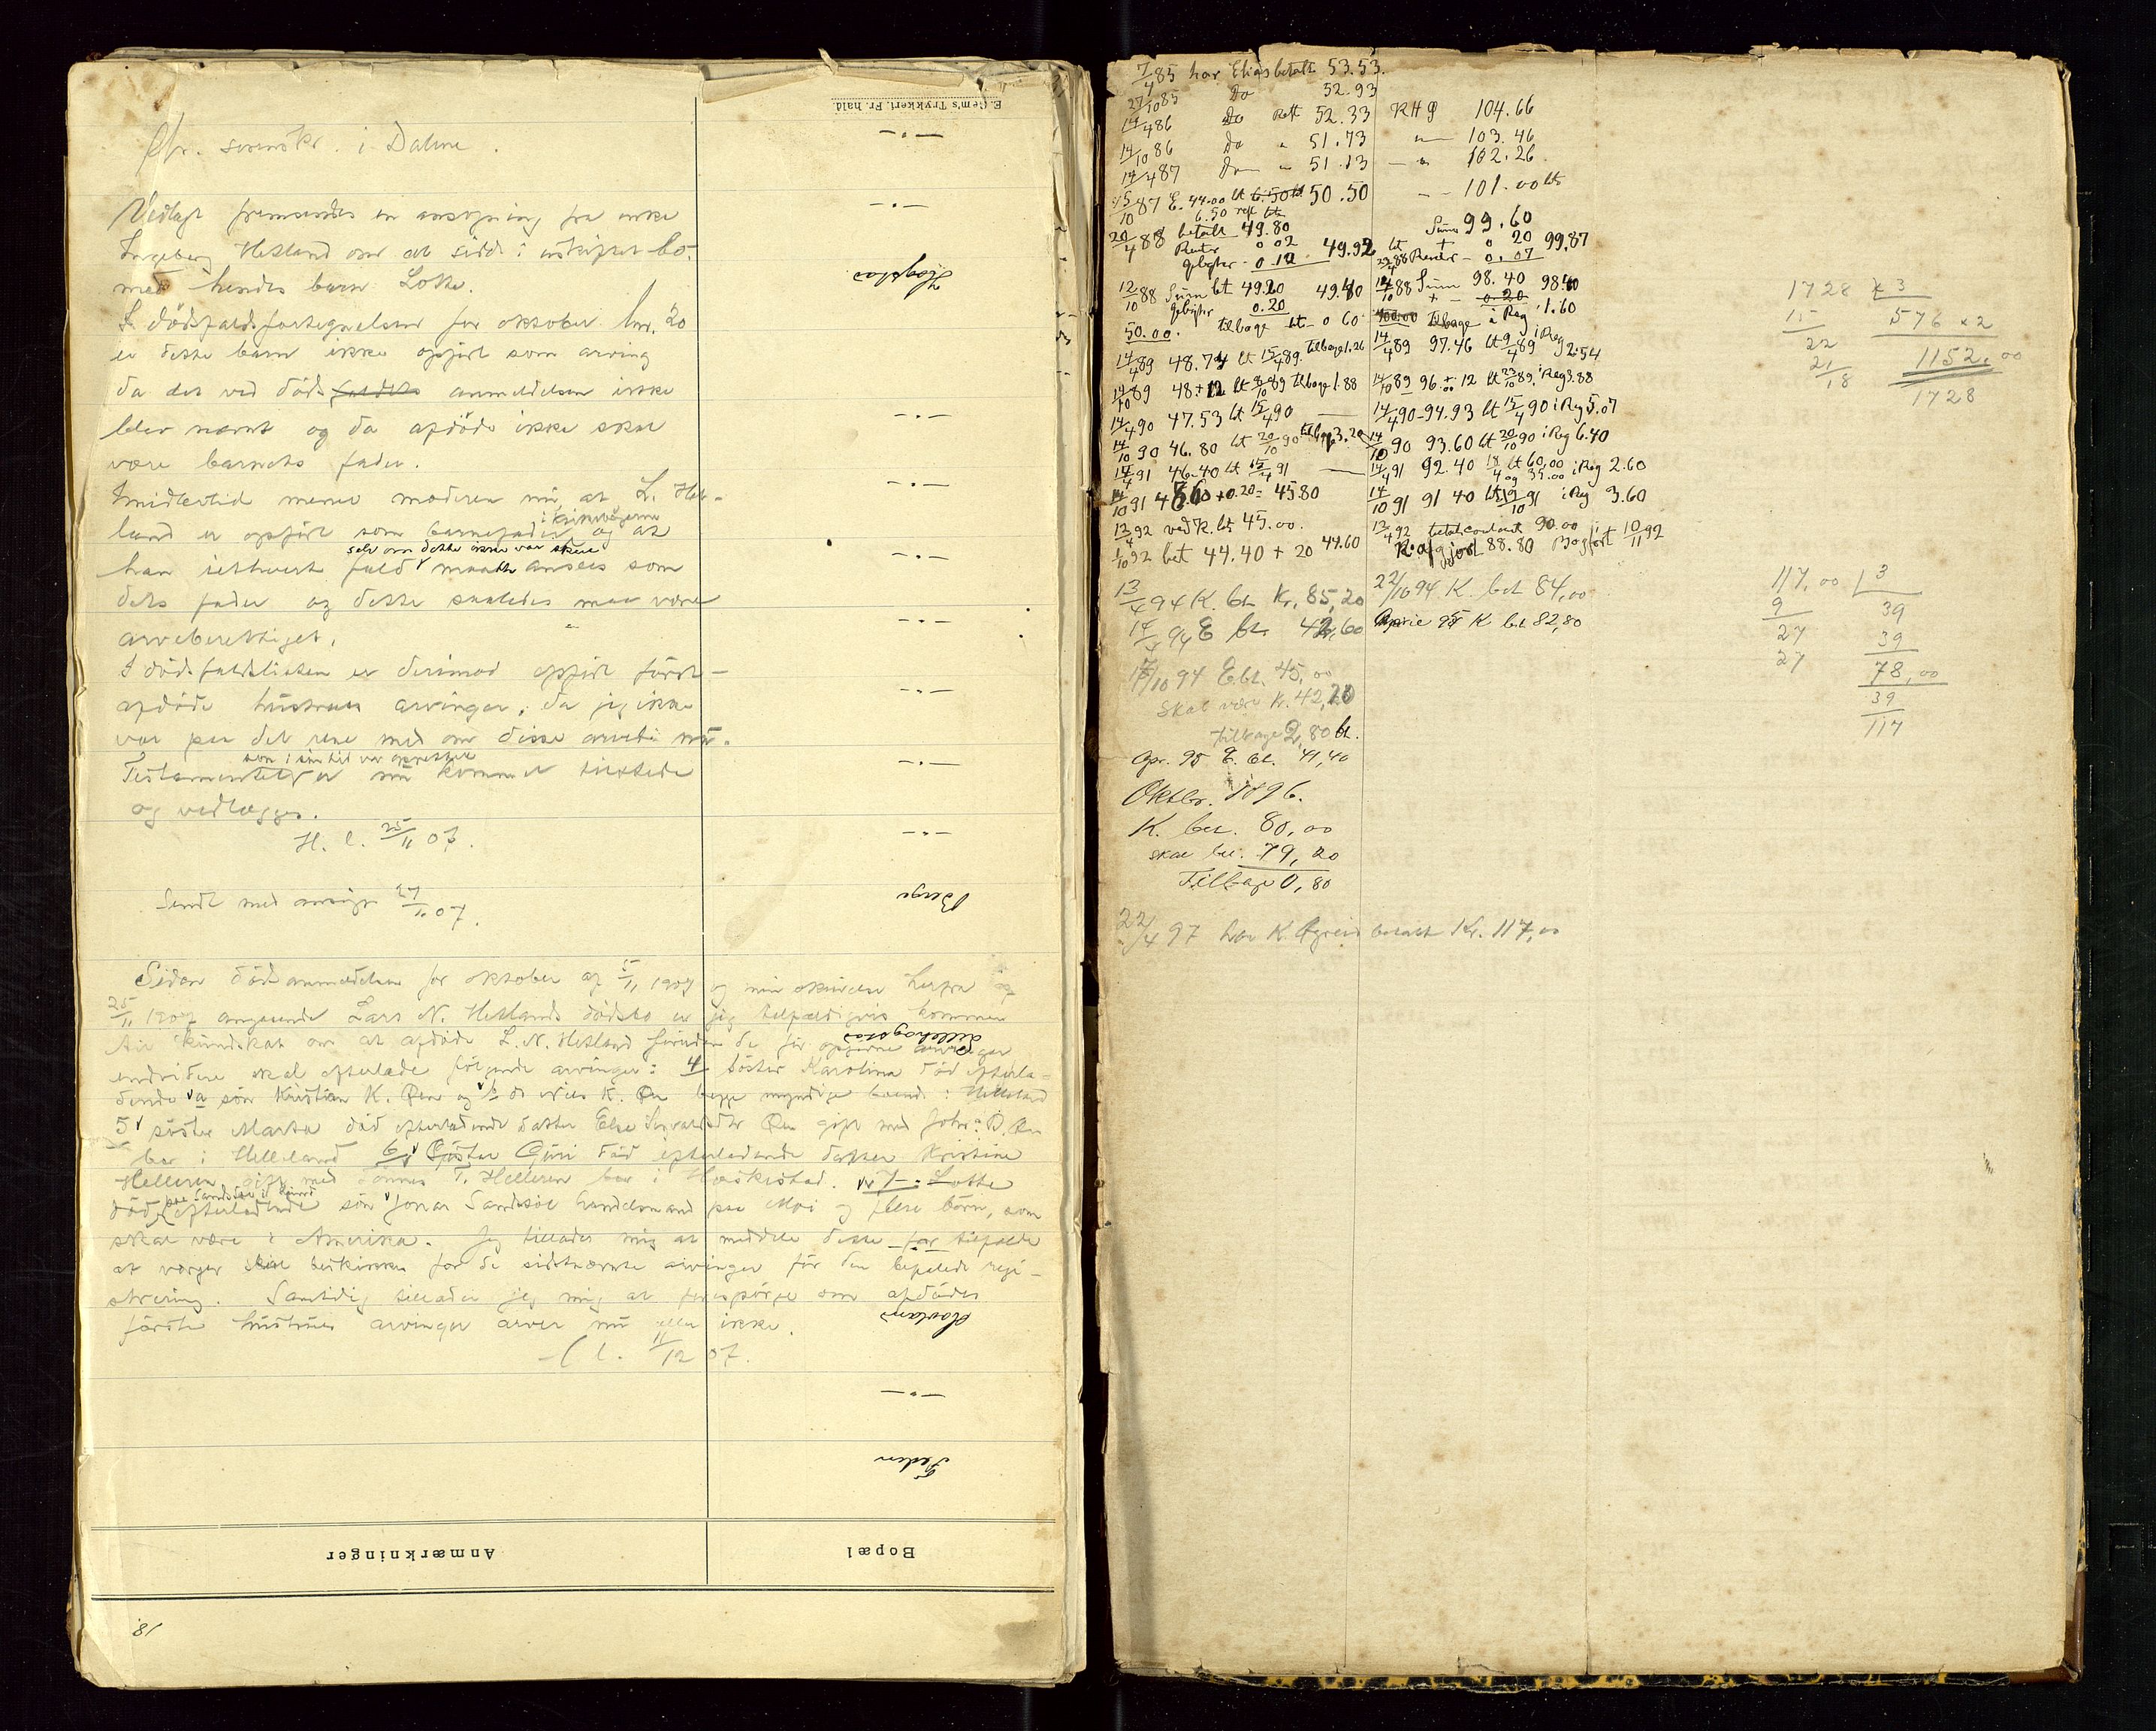 Hr. sorenskr. i Dalene.
Vedlagt fremsendes en ansøgning fra enke
Ingeborg Hetland om at sidde i uskiftet bo
med hendes barn Lotte.
I dödsfaldsfortegnelsen for oktober lnr. 20
er dette barn ikke opfört som arving
da det ved döds anmeldelsen ikke
blev nævnt og da afdöde ikke skal
være barnets fader.
Imidlertid mener moderen nu, at L. Het-
land er opfört som barnefader i kirkebögerne og at
han i ethvert fald selv om dette ikke var skeet maatte ansees som
dets fader og dette saaledes maa være
arveberettiget.
I dödsfaldslisten er derimod opfört först-
afdöde hustrues arvinger, da jeg ikke
var paa det rene med om disse arvede nu.
Testamentet som i sin tid var oprettet er nu kommet tilstede
og vedlægges.
H. l. 25/11 07.
Sendt med ansögn 27/11 07.
Siden dödsanmeldelsen for oktober af 5/11 1907 og min skrivelse herfra af
25/11 1907 angaaende Lars N. Hetlands dödsbo er jeg tilfældigvis kommen
til kundskab om at afdöde L. N. Hetland foruden de för opförte arvinger
endvidere skal efterlade fölgende arvinger: 4/ söster Karolina död efterla-
dende a sön Kristian K. Ren og b do Nils K. Ren begge myndige boende i Helleland
5 söster Marta död efterladende datter Else Sivertsdtr Ren gift med Johs. D. Ren
bor i Helleland 6/ Söster Guri död efterladende datter Kristine
Helleren gift med Tönnes T. Helleren bor i Hæskestad. nr 7 : Lotte
död paa Sandsöe i Lund efterladende sön Jonas Sandsöe handelsmand paa Moi og flere börn, som
skal være i Amerika. Jeg tillader mig at meddele dette for tilfælde
at værger skal beskikkes for de sidstnævnte arvinger för den befalede regi-
strering. Samtidig tillader jeg mig at forespörge om afdödes
förste hustrues arvinger arver nu eller ikke.
H l. 11/12 07.
E. Gem's Trykkeri. Fr.hald
— " —
— " —
Hogstad
— " —
— " —
— " —
— " —
— " —
— " —
— " —
Berge
Lillehogstad
Hovland
— " —
Feden
Bopæl
Anmærkninger
18.
7/4 85 har Elias betalt 53.53.
27/10 85 Do 52.93
14/4 86 Do Rett 52.33 KHG 104.66
14/10 86 Do " 51.73 " 103.46
14/4 87 Do " 51.13 — " 102.26
15/10 87 E. 44.00 bt 6.50 bt 50.50 — - 101.00 bt
6.50 rest bt
20/4 88 betalt 49.80 Sum 99.60
Renter 0 02 49.92 bt + 0 20 99.87
Gebyhr - 0.10 27/4 88 Renter - 0.07
12/10 88 Sum bt 49.20 49.40 14/10 88 Sum 98.40 98.40
Gebyhr 0.20 + - 0.20
50.00. tilbage bt - 0 60 100.00 tilbage i Reg 1.60
14/4 89 48.74 bt 15/4 89. tilbage 1.26 14/4 89 97.46 bt 9/4 89 i Reg 2.54
14/10 89 48 + 12 bt 8/10 89 tilbage 1.88 14/10 89 96.+12 bt 23/10 89. i Reg 3.88
14/4 90 47.53 bt 15/4 90 — 14/4 90 - 94.93 bt 15/4 90 i Reg 5.07
14/10 90 46.80 bt 20/10 90 tilbage 3.20 14/10 90 93.60 bt 20/10 90 i Reg 6.40
14/4 91 46.40 bt 15/4 91 — 14/4 91 92.40 18/4 bt 60,00 og 35.00 i Reg 2.60
14/10 91 45.60 + 0.20 = 45.80 14/10 91 91 40 bt 19/10 91 i Reg 3.60
13/4 92 ved K. bt 45.00. 13/4 92 betalt contant 90.00
1/10 92 bet 44.40 + 20 44.60 K. afgjort 88.80 Bogfört 10/11 92
13/4 94 K. bt. Kr. 85,20 22/10 94 K. bet 84,00
14/4 94 E bt. 42,60 Aprie 95 K bet 82,80
17/10 94 E. bt. 45,00
Skal være K. 42,20
tilbage 2,80 bt.
Apr. 95 E. bt. 41,40
Oktbr. 1896.
K. bet. 80,00
skal bet. 79,20
Tilbage 0,80
22/4 97 har K. Øgreid betalt Kr. 117,00
1728 x 3
15 576 x 2
22 1152,00
21
18 1728
117,00 | 3
9 39
27 39
27 78,00
39
117